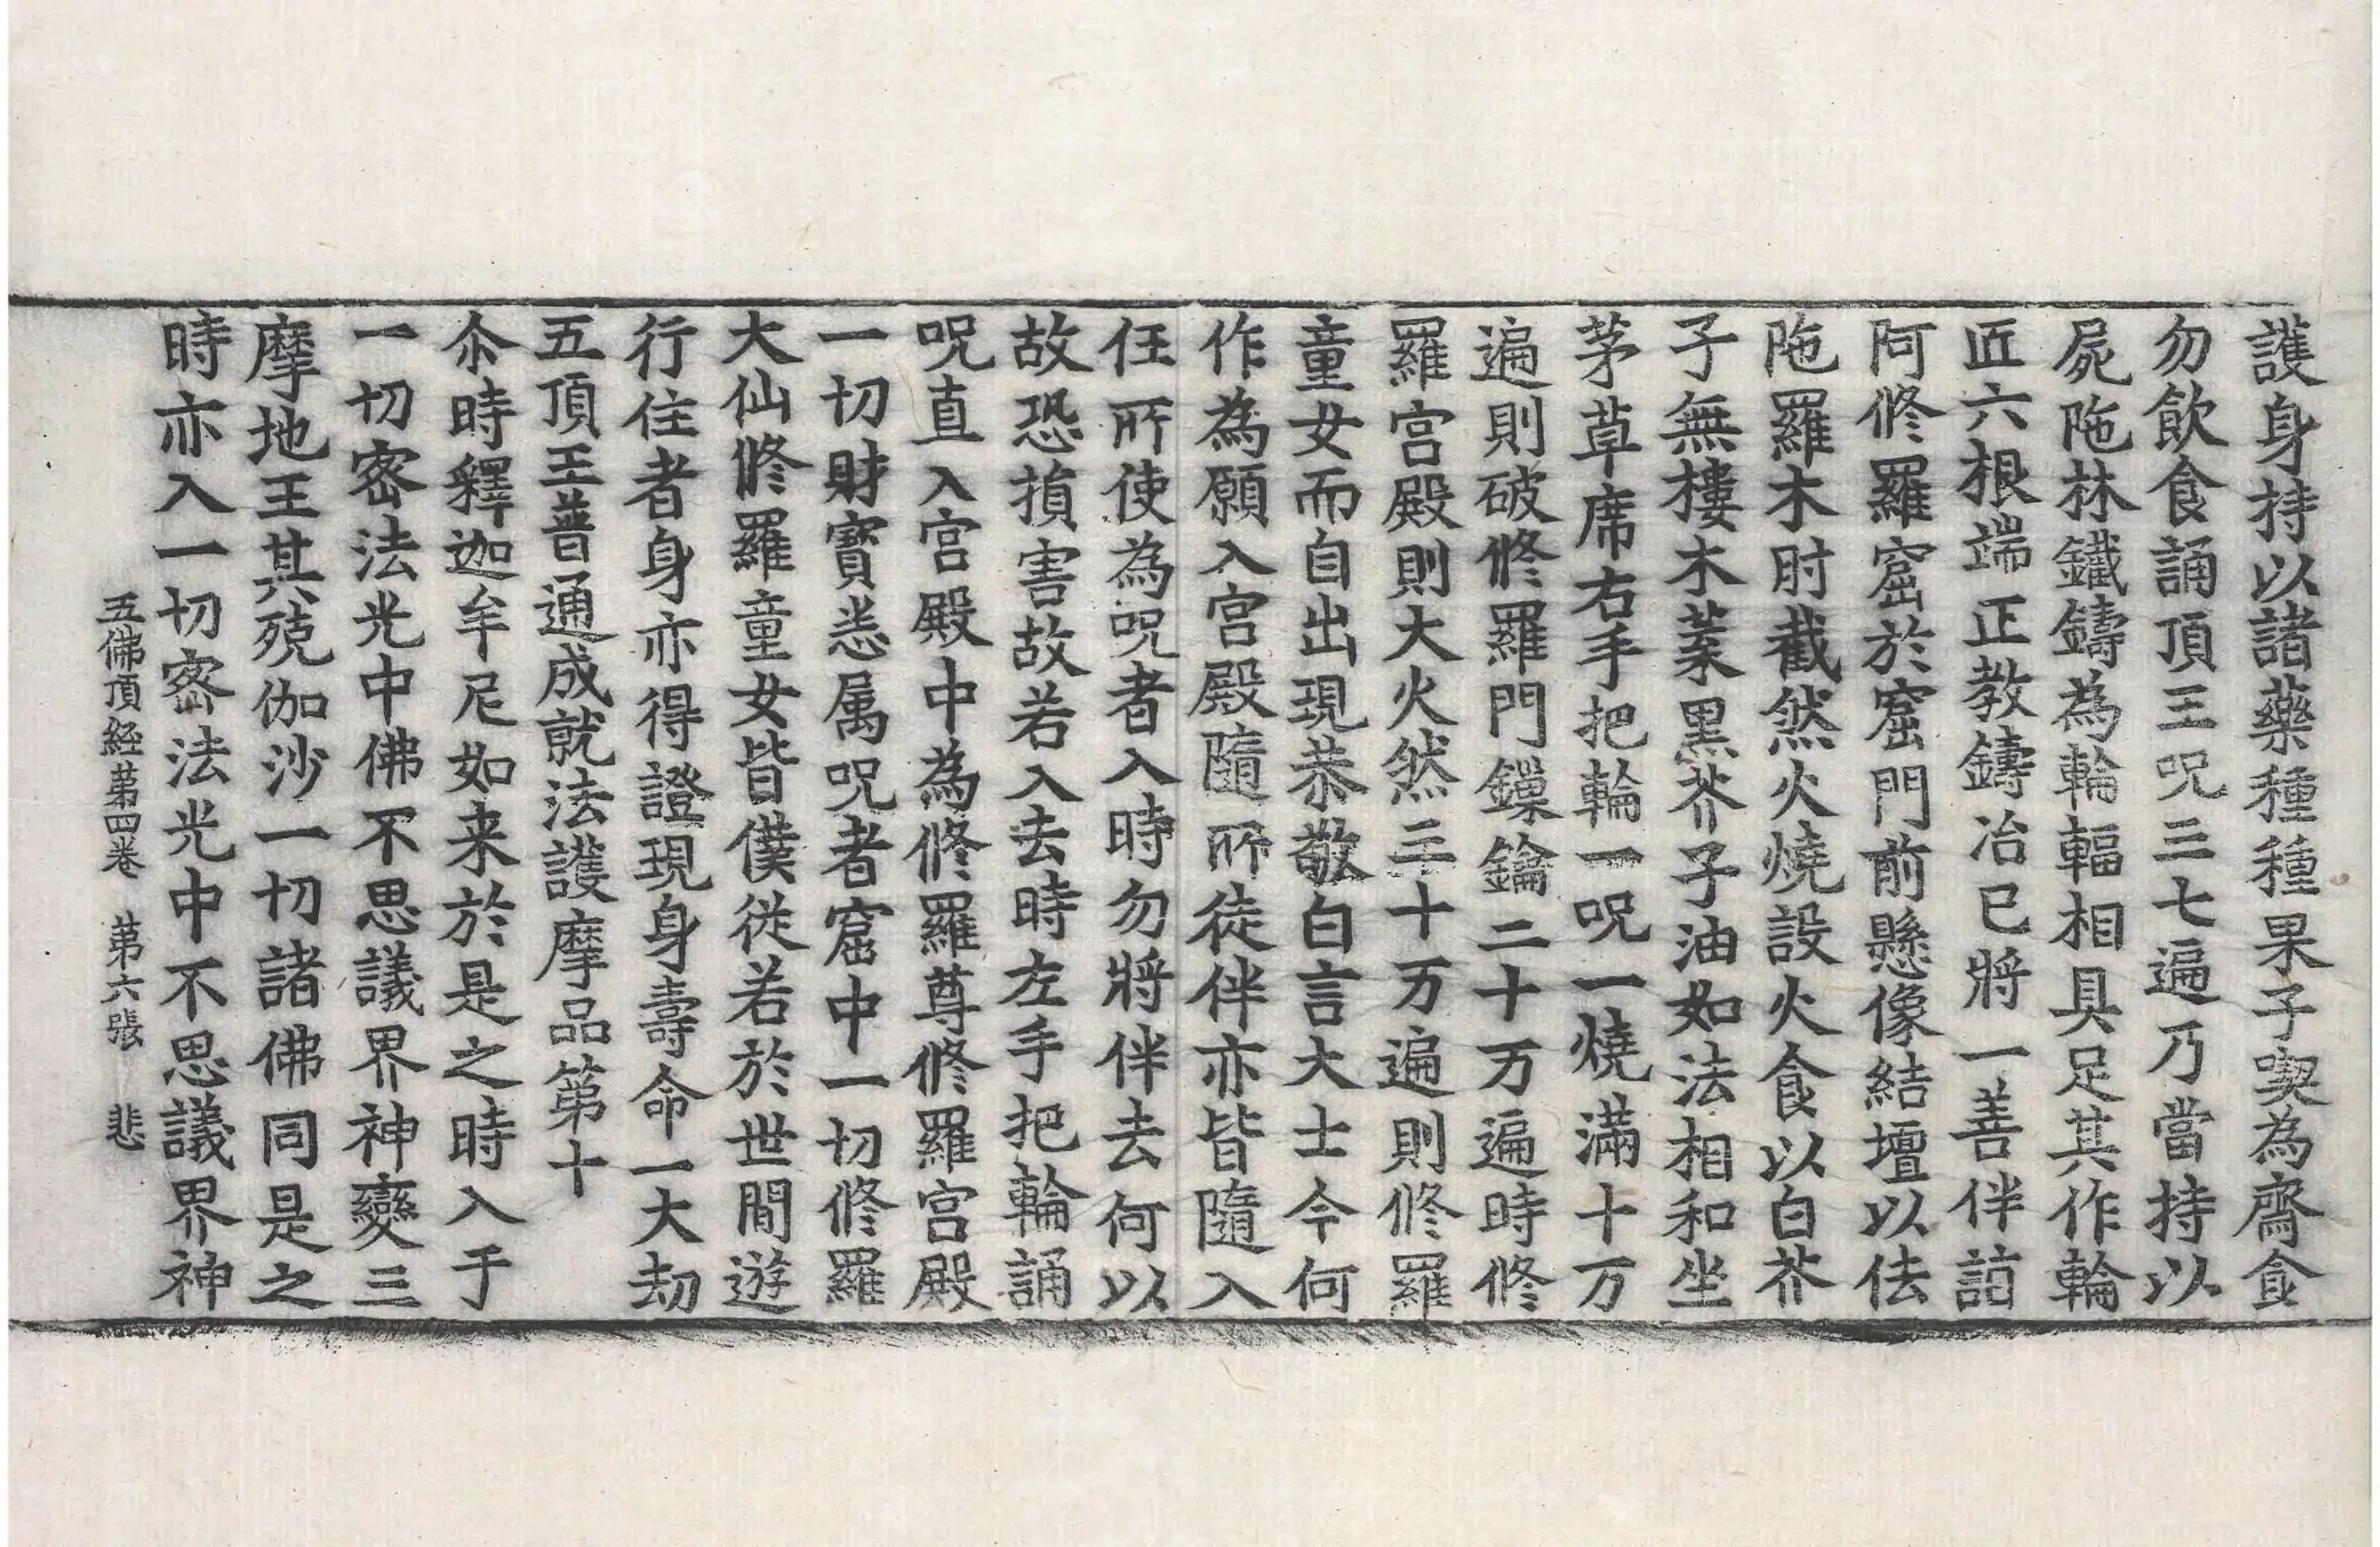 護身持以諸藥種種果子喫為齋食
勿飲食誦頂王呪三七遍乃當持以
屍陁林鐵鑄為輪輻相具足其作輪
匠六根端正教鑄冶已將一善伴詣
阿修羅窟於窟門前懸像結壇以佉
陁羅木肘截然火燒設火食以白芥
子無樓木葉黒芥子油如法相和坐
茅草席右手把輪一呪一燒滿十万
遍則破修羅門鏁鑰二十万遍時修
羅宮殿則大火然三十万遍則修羅
童女而自出現恭敬白言大士今何
作為願入宮殿隨所徒伴亦皆隨入
任所使為呪者入時勿將伴去何以
故恐損害故若入去時左手把輪誦
呪直入宮殿中為修羅尊修羅宮殿
一切財寶悉属呪者窟中一切修羅
大仙修羅童女皆僕從若於世間遊
行住者身亦得證現身壽命一大劫
五頂王普通成就法護摩品第十
尒時釋迦牟尼如来於是之時入于
一切密法光中佛不思議界神變三
摩地王其殑伽沙一切諸佛同是之
時亦入一切密法光中不思議界神
五佛頂經第四卷 第六張 悲